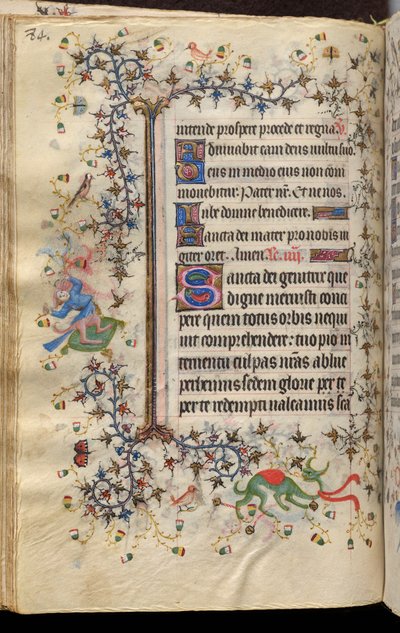 74.
intende prospere procede et regna. V.
Adiuuabit eam deus uultu suo.
Deus in medio eius non com
mouebitur. Pater nr̄. Et ne nos.
Iube domne benedicere.
Sancta dei mater pro nobis in
giter oret. Amen. Lc. iii
Sancta dei genitrix que
digne meruisti conci
pere quem totus orbis nequi
uit comprehendere: tuo pio in
teruentu culpas nr̄as ablue
perhennis sedem glorie per te
per te redempti ualeamus sca